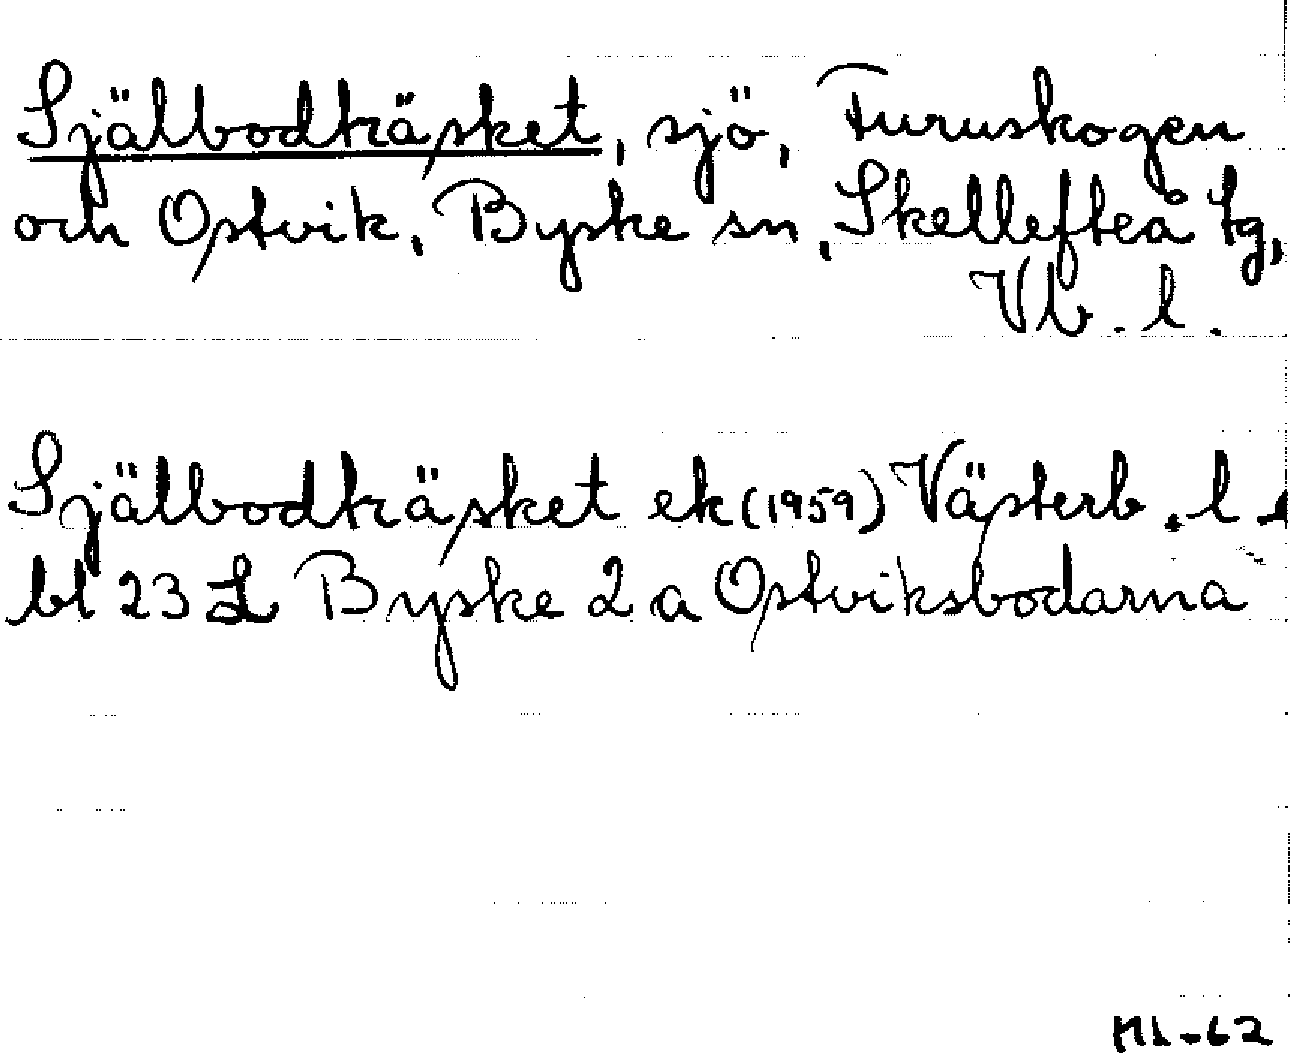 Själbodträsket, sjö, Furuskogen
och Ostvik, Byske sn, Skellefteå tg,
Vb. l.
Själbodträsket ek (1959) Västerb. l.
bl 23 L Byske 2 a Ostviksbodarna